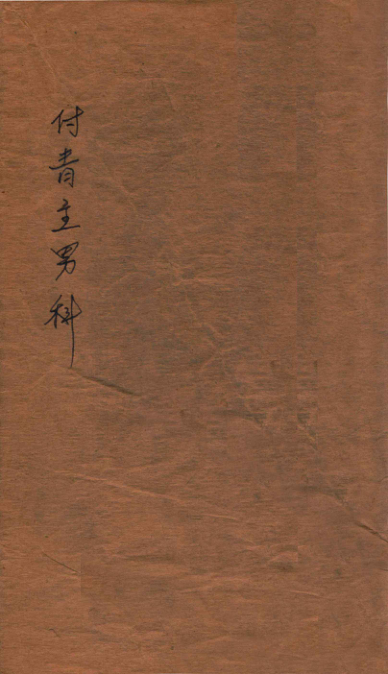 付青主男科